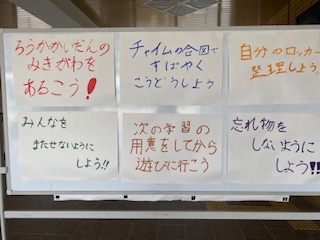 ろうかかいだんの
みぎがわを
あるこう！
チャイムの合図で
すばやく
こうどうしよう
自分のロッカー
整理しよう！
みんなを
またせないように
しよう!!
次の学習の
用意をしてから
遊びに行こう
忘れ物を
しないように
しよう!!